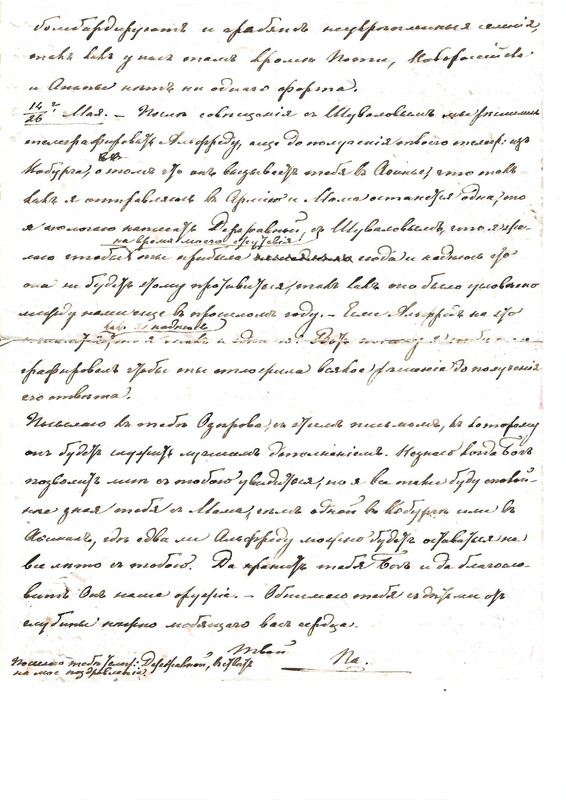 бомбардируютъ и грабятъ неукрѣпленныя селенія,
такъ какъ у насъ тамъ кромѣ Поти, Новороссійска
и Анапы нѣтъ ни одного форта.
14/26го Мая. – Послѣ совѣщанія съ Шуваловымъ мы рѣшились
телеграфировать Альфреду, еще до полученія твоего телегр: изъ
Кобурга, о томъ что онъ вызываетъ тебя въ Аѳины, что такъ
какъ я отправляюсь въ Армію и Мама останется одна, то
я поручаю написать Державной, съ Шуваловымъ, что я же-
на время моего отсутствія
лаю чтобы ты прибыла сюда и надѣюсь что
она не будетъ этому противиться, такъ какъ оно было условлено
между нами еще въ прошломъ году. – Если Альфредъ на это
какъ я надѣюсь
графировалъ чтобы ты отложила всякое рѣшеніе до полученія
его отвѣта.
Посылаю къ тебѣ Озерова, съ этимъ письмомъ, къ которому
онъ будетъ служить дополненіемъ. Не знаю когда Богъ
позволитъ мнѣ съ тобою увидиться, но я все таки буду спокой-
нѣе зная тебя съ Мама, чѣмъ одной въ Кобургѣ или въ
Аѳинахъ, гдѣ едва ли Альфреду можно будетъ оставаться на
все лѣто съ тобою. Да хранитъ тебя Богъ и да благосло-
витъ Онъ наше оружіе. – Обнимаю тебя съ дѣтьми отъ
глубины нѣжно любящаго васъ сердца.
Твой
Па.
Посылаю тебѣ телегр: Державной, въ отвѣтъ
на мое поздравленіе.